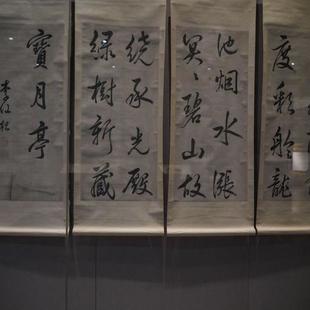 度彩舲龍
池烟水漲
冥〻碧山故
繞承光殿
綠樹新藏
寶月亭